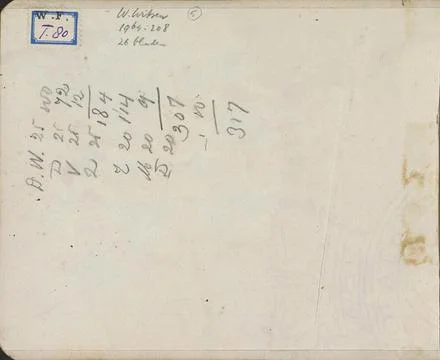 W. F.
T. 80
W. Witsen
1964:208
26 bladen
5
D. W. 25 100
D 25 72
V 25 12
Z 25 184
Z 20 114
M 20 9
D 20 307
10
317